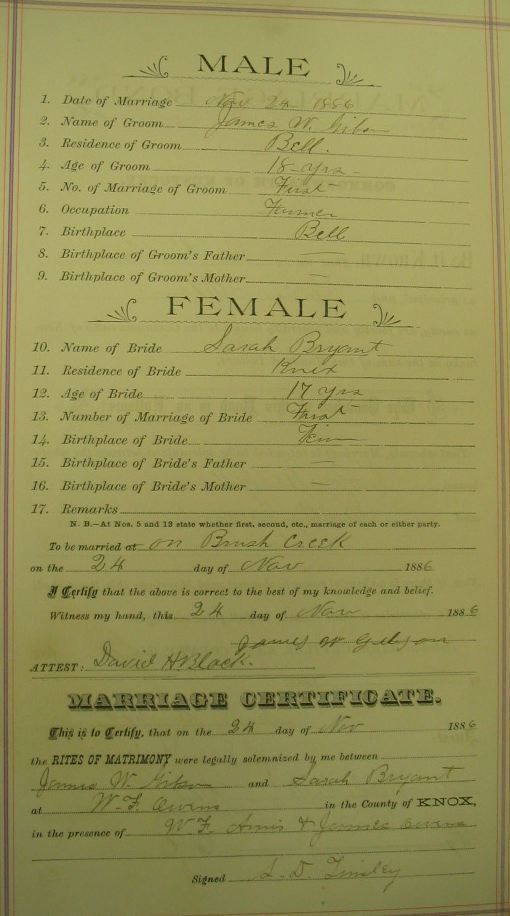 MALE
1. Date of Marriage Nov 24 1886
2. Name of Groom James W. Gibson
3. Residence of Groom Bell.
4. Age of Groom 18 yrs
5. No. of Marriage of Groom First
6. Occupation Farmer
7. Birthplace Bell
8. Birthplace of Groom's Father —
9. Birthplace of Groom's Mother —
FEMALE
10. Name of Bride Sarah Bryant
11. Residence of Bride Knox
12. Age of Bride 17 yrs
13. Number of Marriage of Bride First
14. Birthplace of Bride
15. Birthplace of Bride's Father —
16. Birthplace of Bride's Mother —
17. Remarks
N. B.—At Nos. 5 and 13 state whether first, second, etc., marriage of each or either party.
To be married at on Brush Creek
on the 24 day of Nov 1886
I Certify that the above is correct to the best of my knowledge and belief.
Witness my hand, this 24 day of Nov 1886
James W Gibson
ATTEST: David H Black.
MARRIAGE CERTIFICATE.
This is to Certify, that on the 24 day of Nov 1886
the RITES OF MATRIMONY were legally solemnized by me between
James W. Gibson and Sarah Bryant
at W. F. Owens in the County of KNOX,
in the presence of W. F. Amis & James Owens
Signed L. D. Tinsley